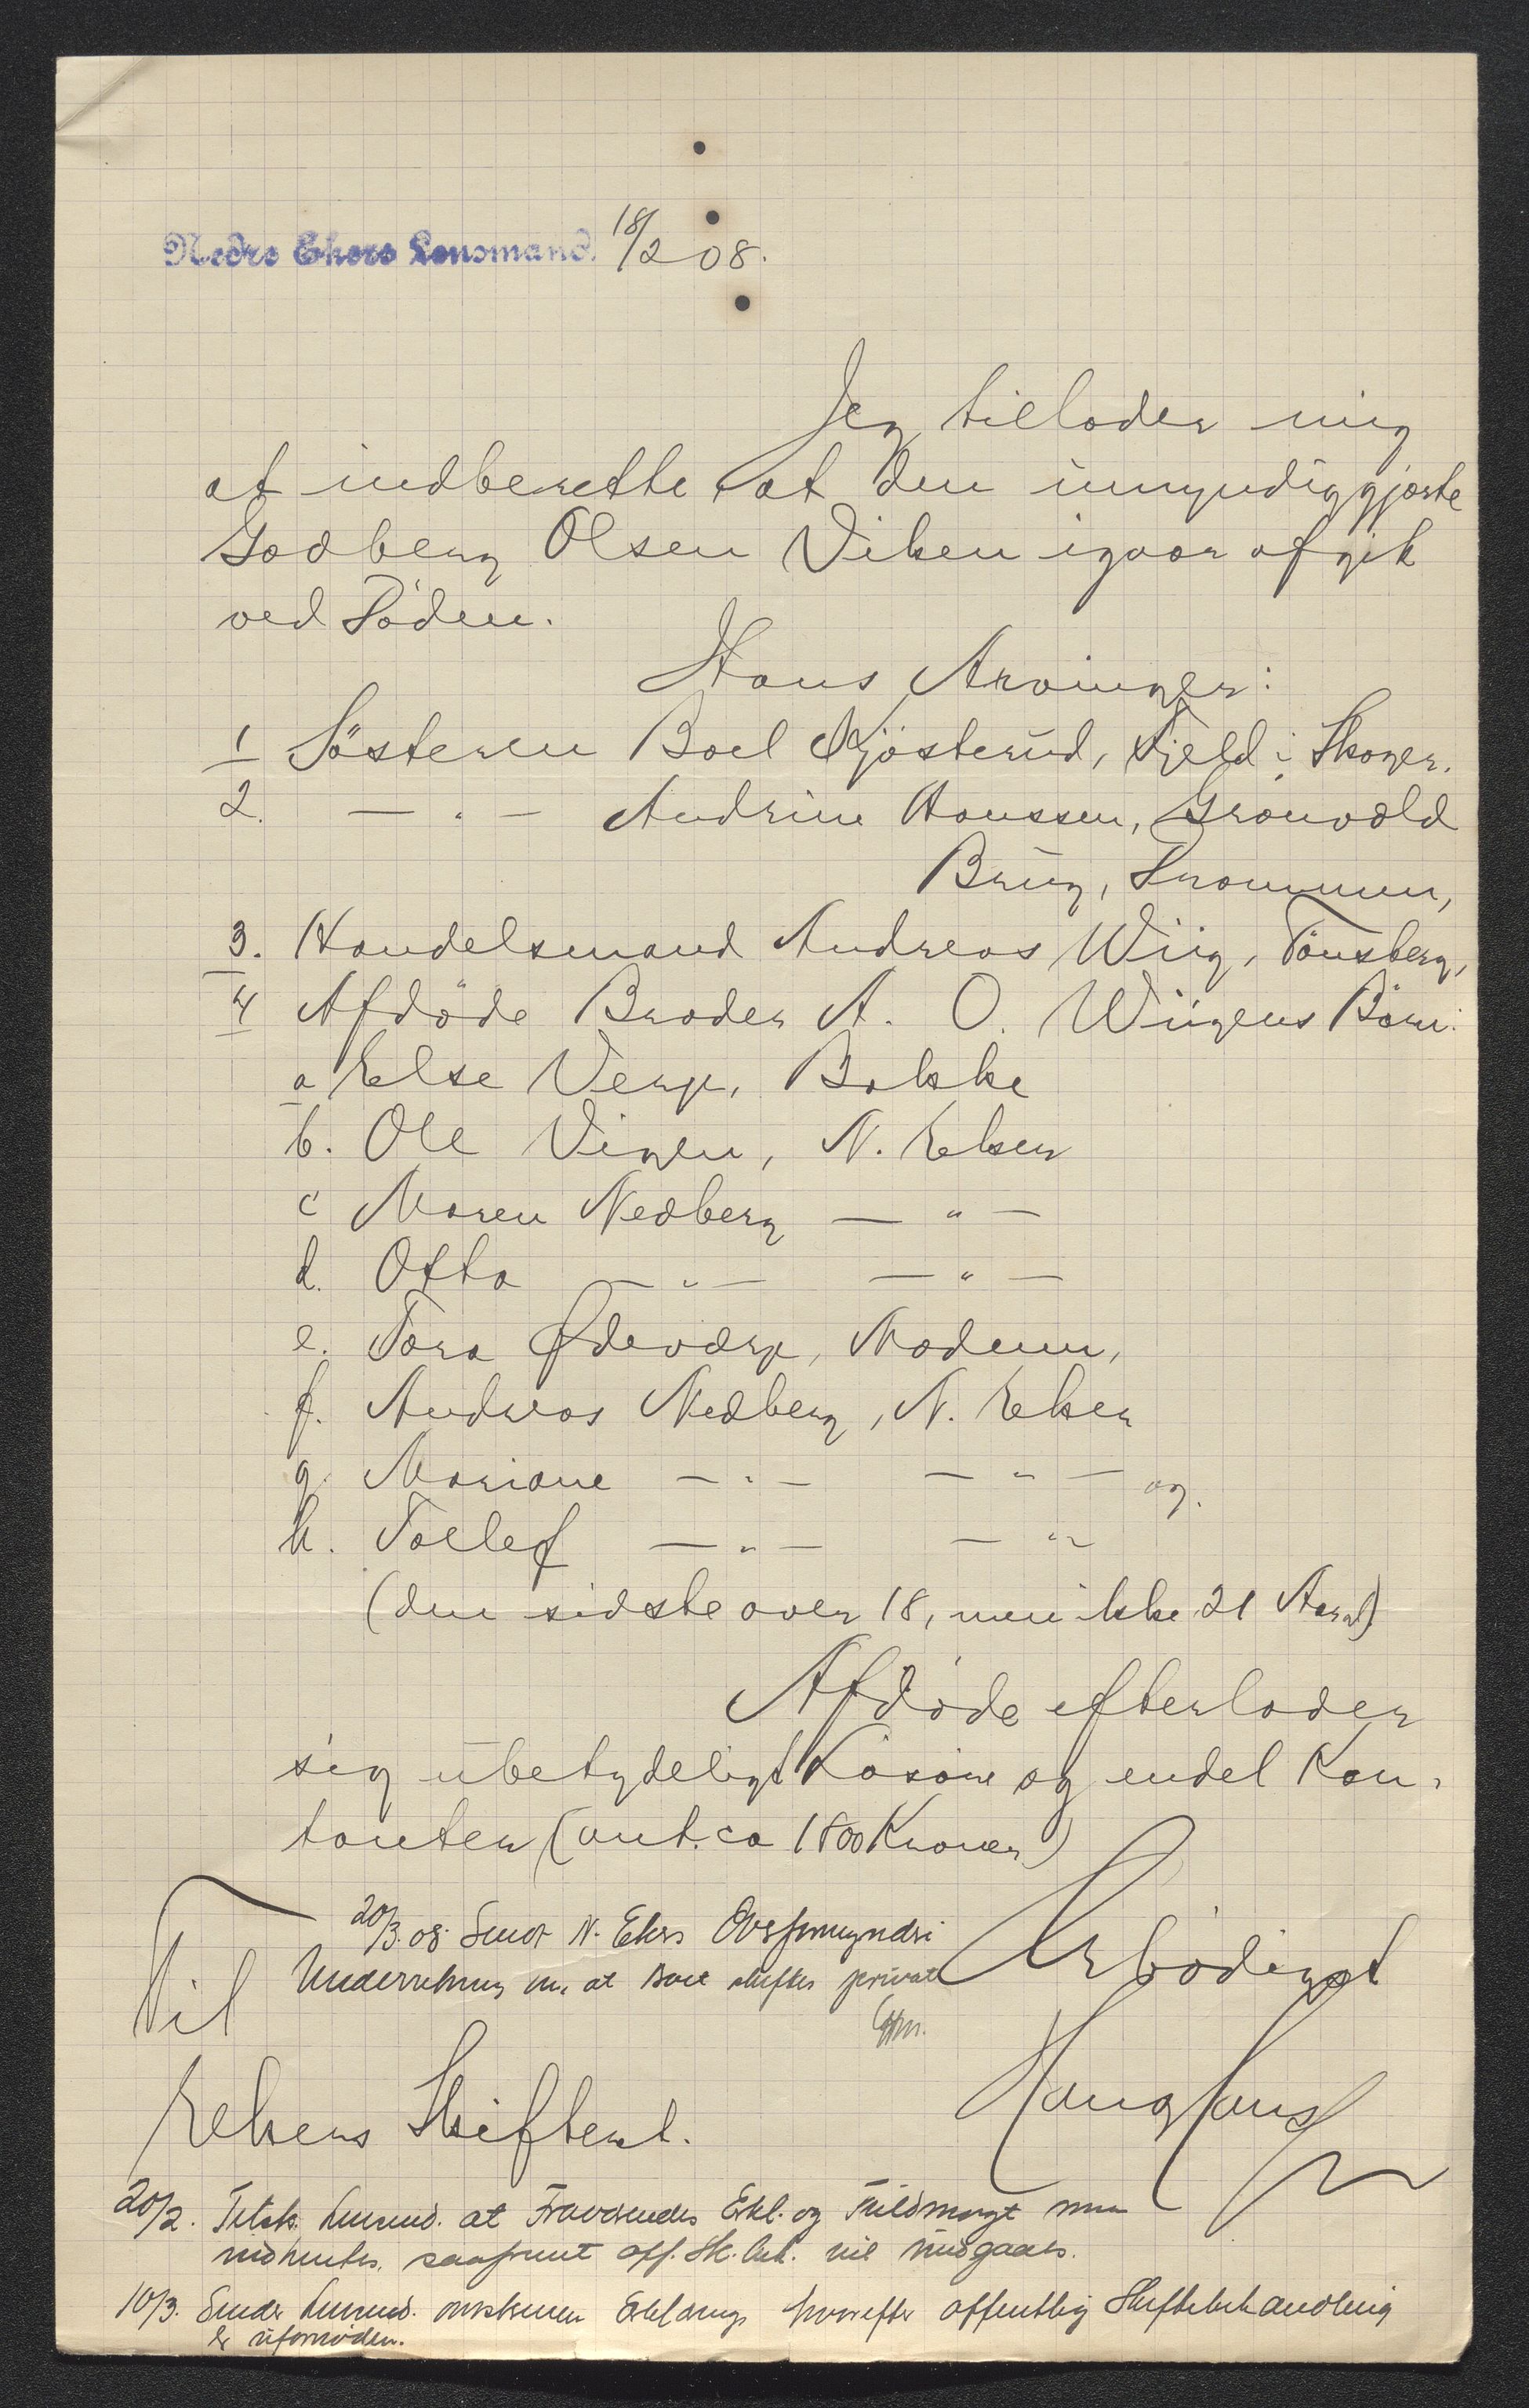 Nedre Ekers Lensmand. 18/2 08.
Jeg tillader mig
at indberette at den umyndiggjorte
Gudberg Olsen Viken igaar afgik
ved Döden.
Hans Arvinger:
1 Søsteren Boel Kjøsterud, Fjeld i Skoger.
2. — " — Andrine Hanssen, Grönvold
Brug, Drammen,
3. Handelsmand Andreas Wiig, Tönsberg,
4 Afdöde Broder A. O. Wiigens Börn:
a Else Verp, Bakke
b. Ole Vigen, N. Eker
c Maren Nedberg — " —
d. Otto — " — — " —
e. Tora Ødevarp, Modum,
f. Andreas Nedberg, N. Eker
g. Mariane — " — — " — og
h. Tollef — " — — " —
(den sidste over 18, men ikke 21 Aar)
Afdöde efterlader
sig ubetydeligt Lösöre og endel Kon-
tanter (ant. ca 1800 Kroner)
Ærbödigst
20/3.08. Sendt N. Ekers Overformynderi
Underretning om at Boet skiftes privat
Til
Ekers Skifteret.
20/2. Tilsk. Lensmd. at Fraværendes Erkl. og Fuldmagt maa
indhentes, saafremt off. Sk. beh. vil undgaaes.
10/3. Sender Lensmd. Erklæring hvorefter offentlig Skiftebehandling
er ufornöden.